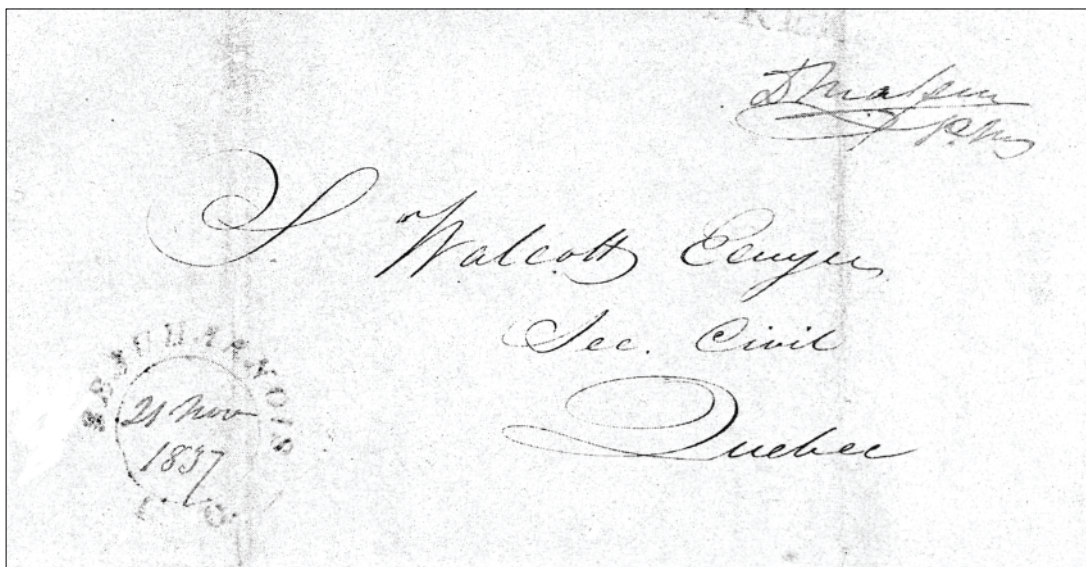 FREE
P.M.
S. Walcott Ecuyer
Sec. Civil
Quebec
BEAUHARNOIS
21 Nov
1837